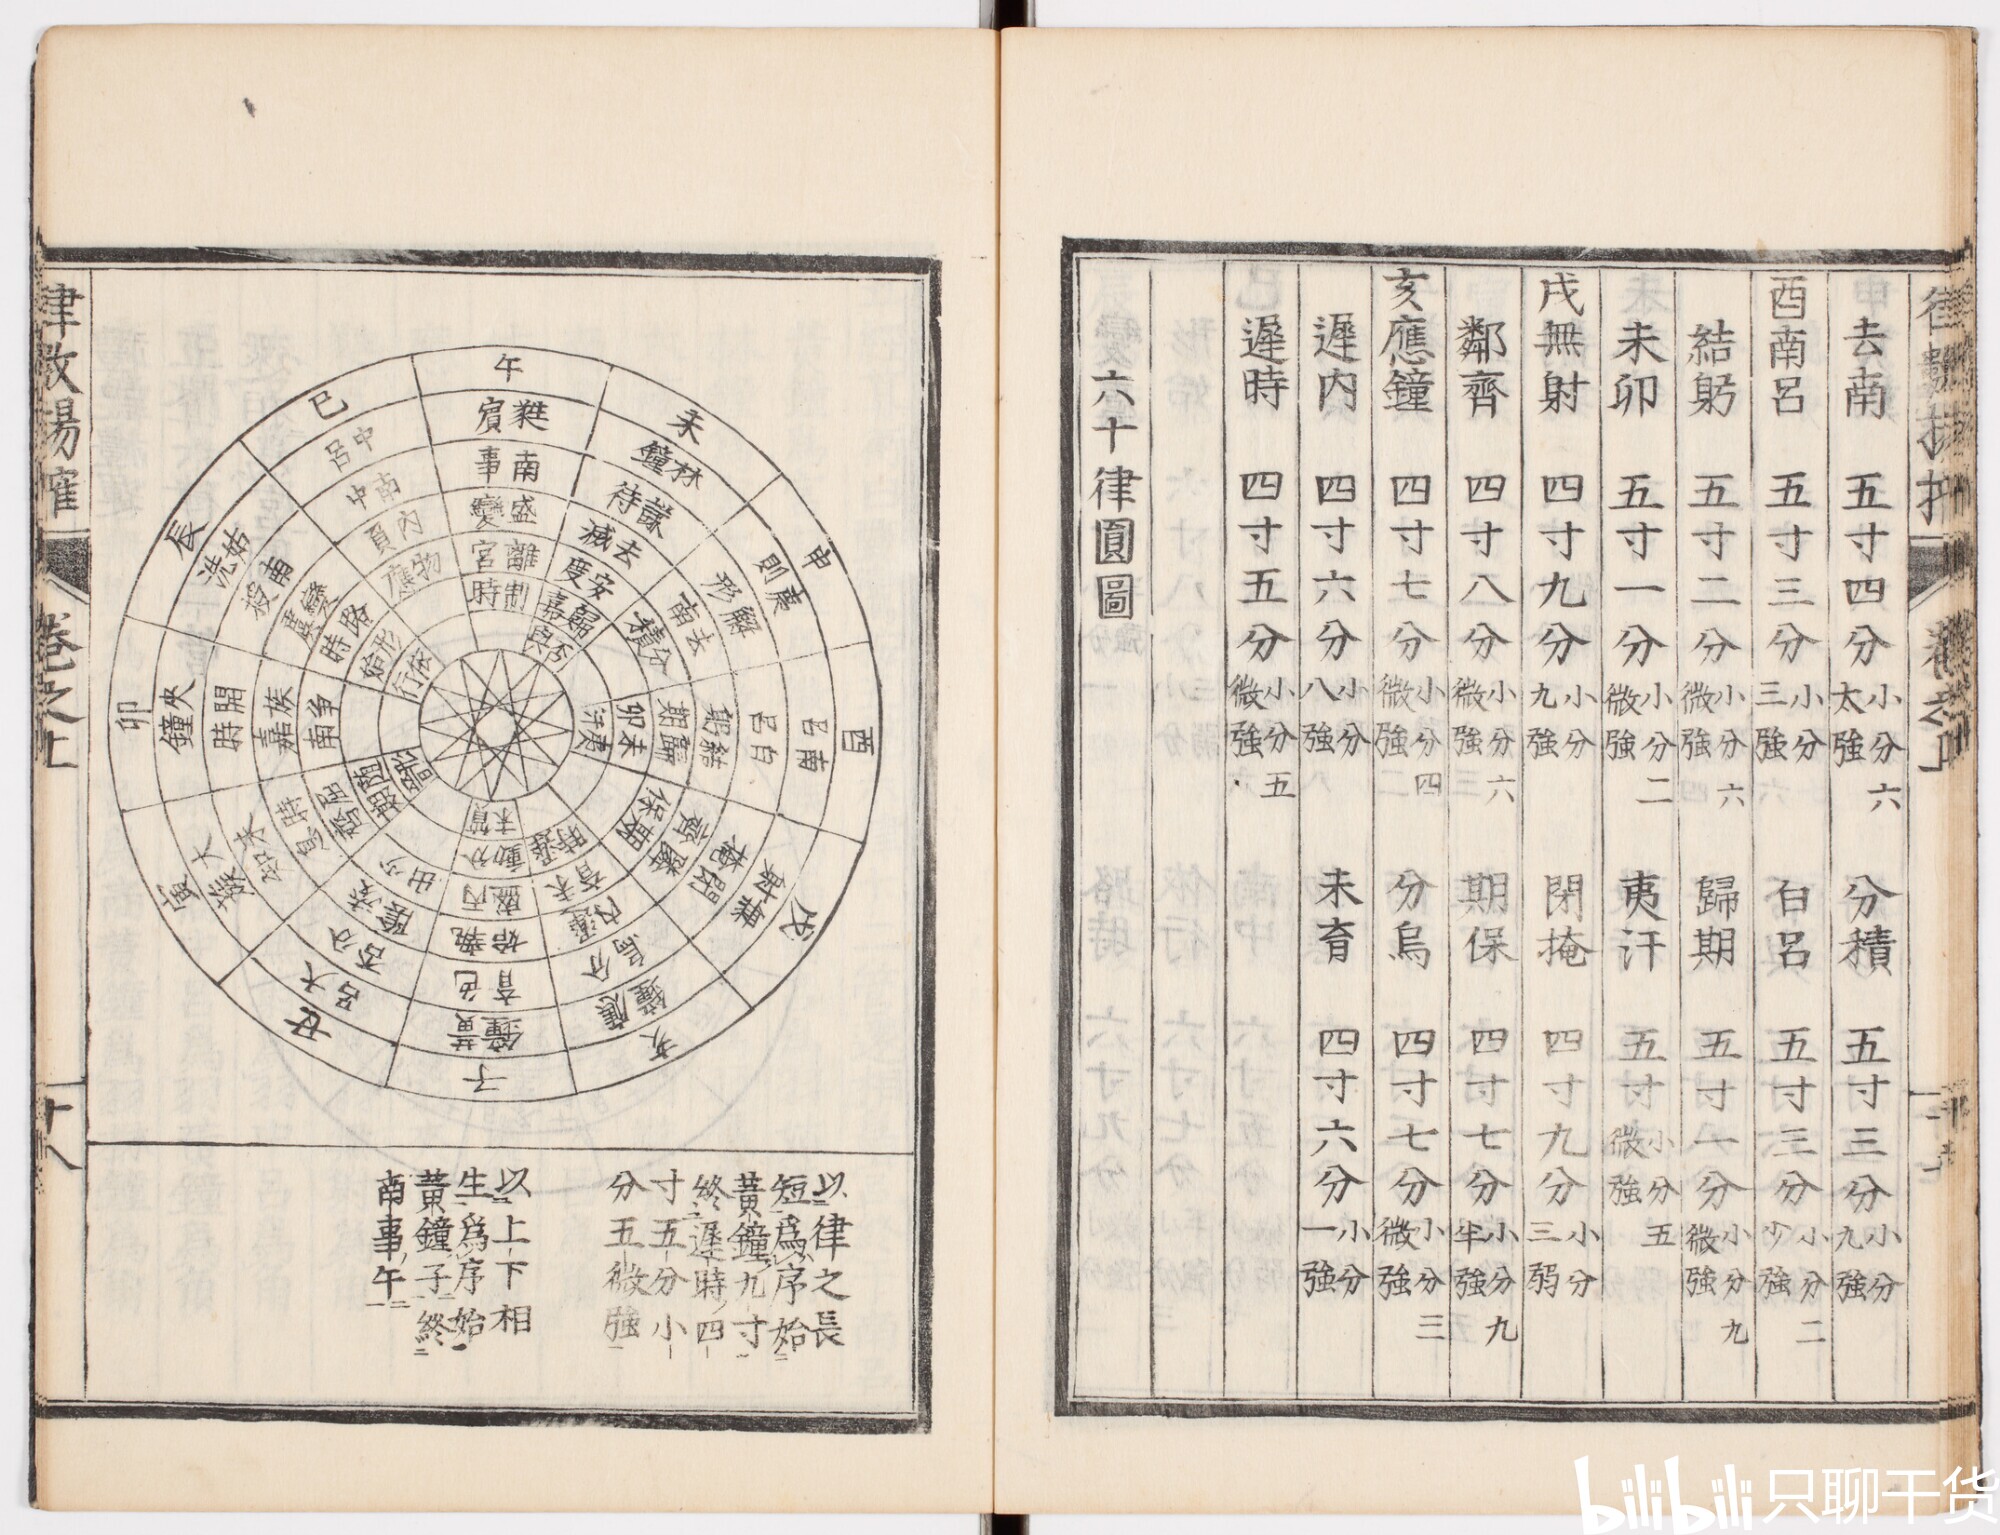 去南 五寸四分 小分六太強 分積 五寸三分 小分九強
酉南呂 五寸三分 小分三強 白呂 五寸三分 小分二少強
結躬 五寸二分 小分六微強 歸期 五寸一分 小分九微強
未卯 五寸一分 小分二微強 夷汗 五寸 小分五微強
戌無射 四寸九分 小分九強 閉掩 四寸九分 小分三弱
鄰齊 四寸八分 小分六微強 期保 四寸七分 小分九半強
亥應鐘 四寸七分 小分四微強 分烏 四寸七分 小分三微強
遲内 四寸六分 小分八強 未育 四寸六分 小分一強
遲時 四寸五分 小分五微強
六十律圓圖
午 蕤賓 南事 盛變 離宮 制時
未 林鐘 謙待 去滅 安度 歸嘉 否與
申 夷則 解形 去南 分積
酉 南呂 白呂 結躬 歸期 未卯 夷汗
戌 無射 閉掩 鄰齊 期保
亥 應鐘 分烏 遲内 未育 遲時
子 黃鐘 色育 執始 丙盛 分動 質末
丑 大呂 分否 凌陰 少出
寅 太族 未知 時息 屈齊 隨期 形晉
卯 夾鐘 開時 族嘉 爭南
辰 姑洗 南授 變虞 路時 形始 依行
巳 中呂 南中 内負 物應
以律之長
短爲序始
黃鐘九寸
終遲時四
寸五分小
分五微強
以上下相
生爲序始
黃鐘子終
南事午
卷之上
十八